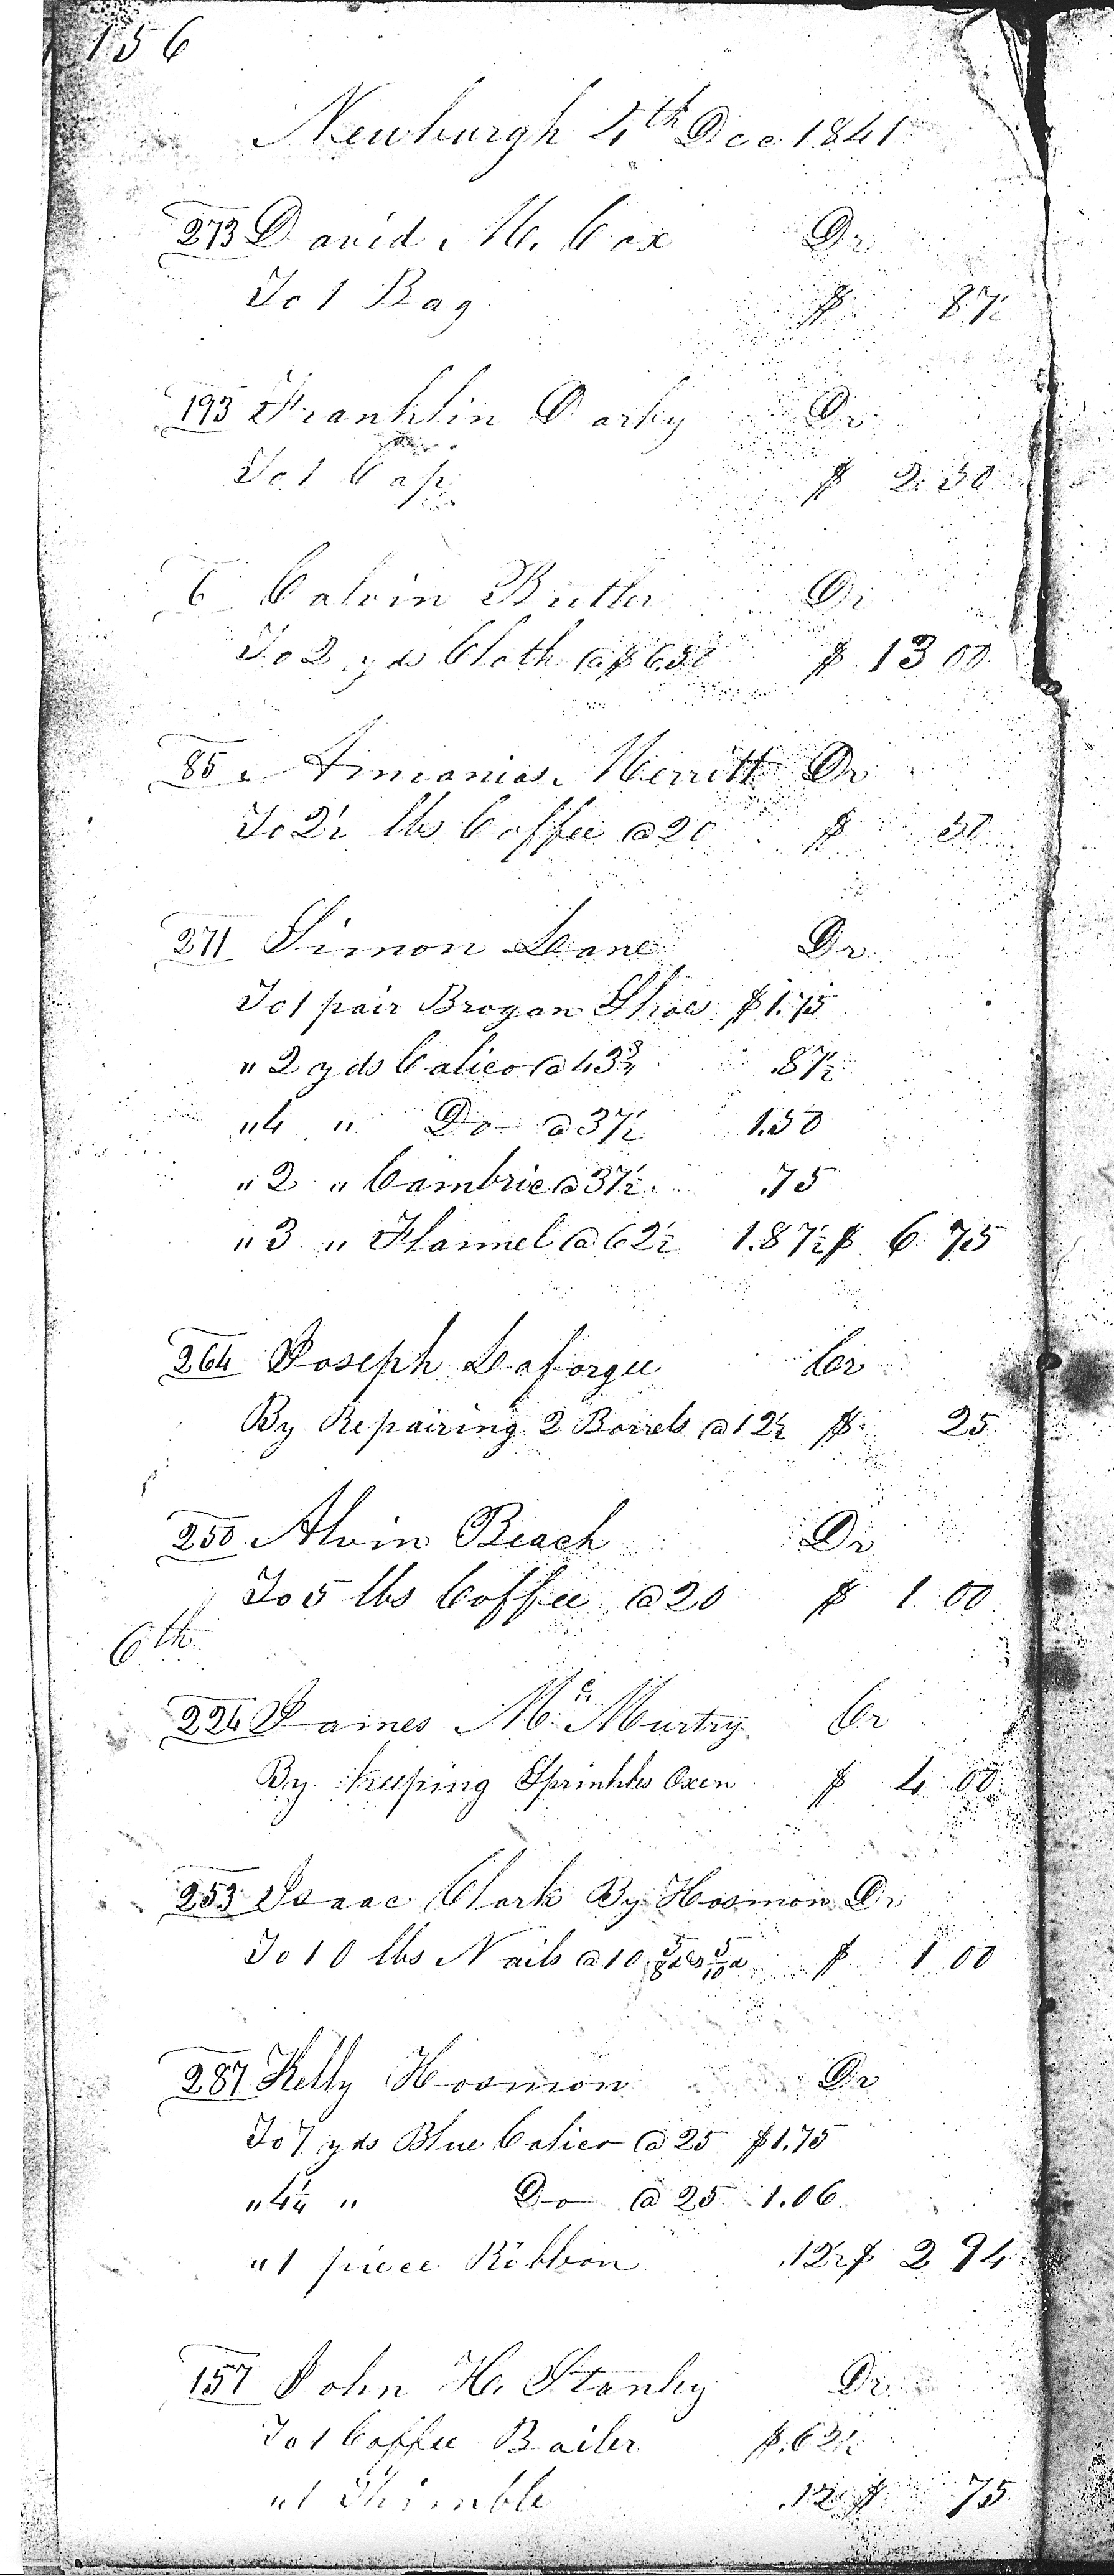 156
Newburgh 4th Dec 1841
273 David M. Cox Dr
To 1 Bag $ 87½
193 Franklin Darby Dr
To 1 Cap $ 2.50
6 Calvin Butler Dr
To 2 yds Cloth @ $6.50 $ 13 00
85 Annanias Merritt Dr
To 2½ lbs Coffee @ 20 $ 50
271 Simon Lane Dr
To 1 pair Brogan Shoes $1.75
" 2 yds Calico @ 43¾ .87½
" 4 " Do @ 37½ 1.50
" 2 " Cambric @ 37½ .75
" 3 " Flannel @ 62½ 1.87½ $ 6 75
264 Joseph Laforgee Cr
By Repairing 2 Barrels @ 12½ $ 25
250 Alvin Beach Dr
To 5 lbs Coffee @ 20 $ 1 00
6th
224 James McMurtry Cr
By keeping Sprinkles Oxen $ 4 00
253 Isaac Clark By Hosmon Dr
To 10 lbs Nails @ 10 5/8d & 5/10d $ 1 00
287 Kelly Hosmon Dr
To 7 yds Blue Calico @ 25 $1.75
" 4¼ " Do @ 25 1.06
" 1 piece Ribbon .12½ $ 2 94
157 John H. Stanley Dr
To 1 Coffee Boiler $.62½
" 1 Thimble .12 $ 75